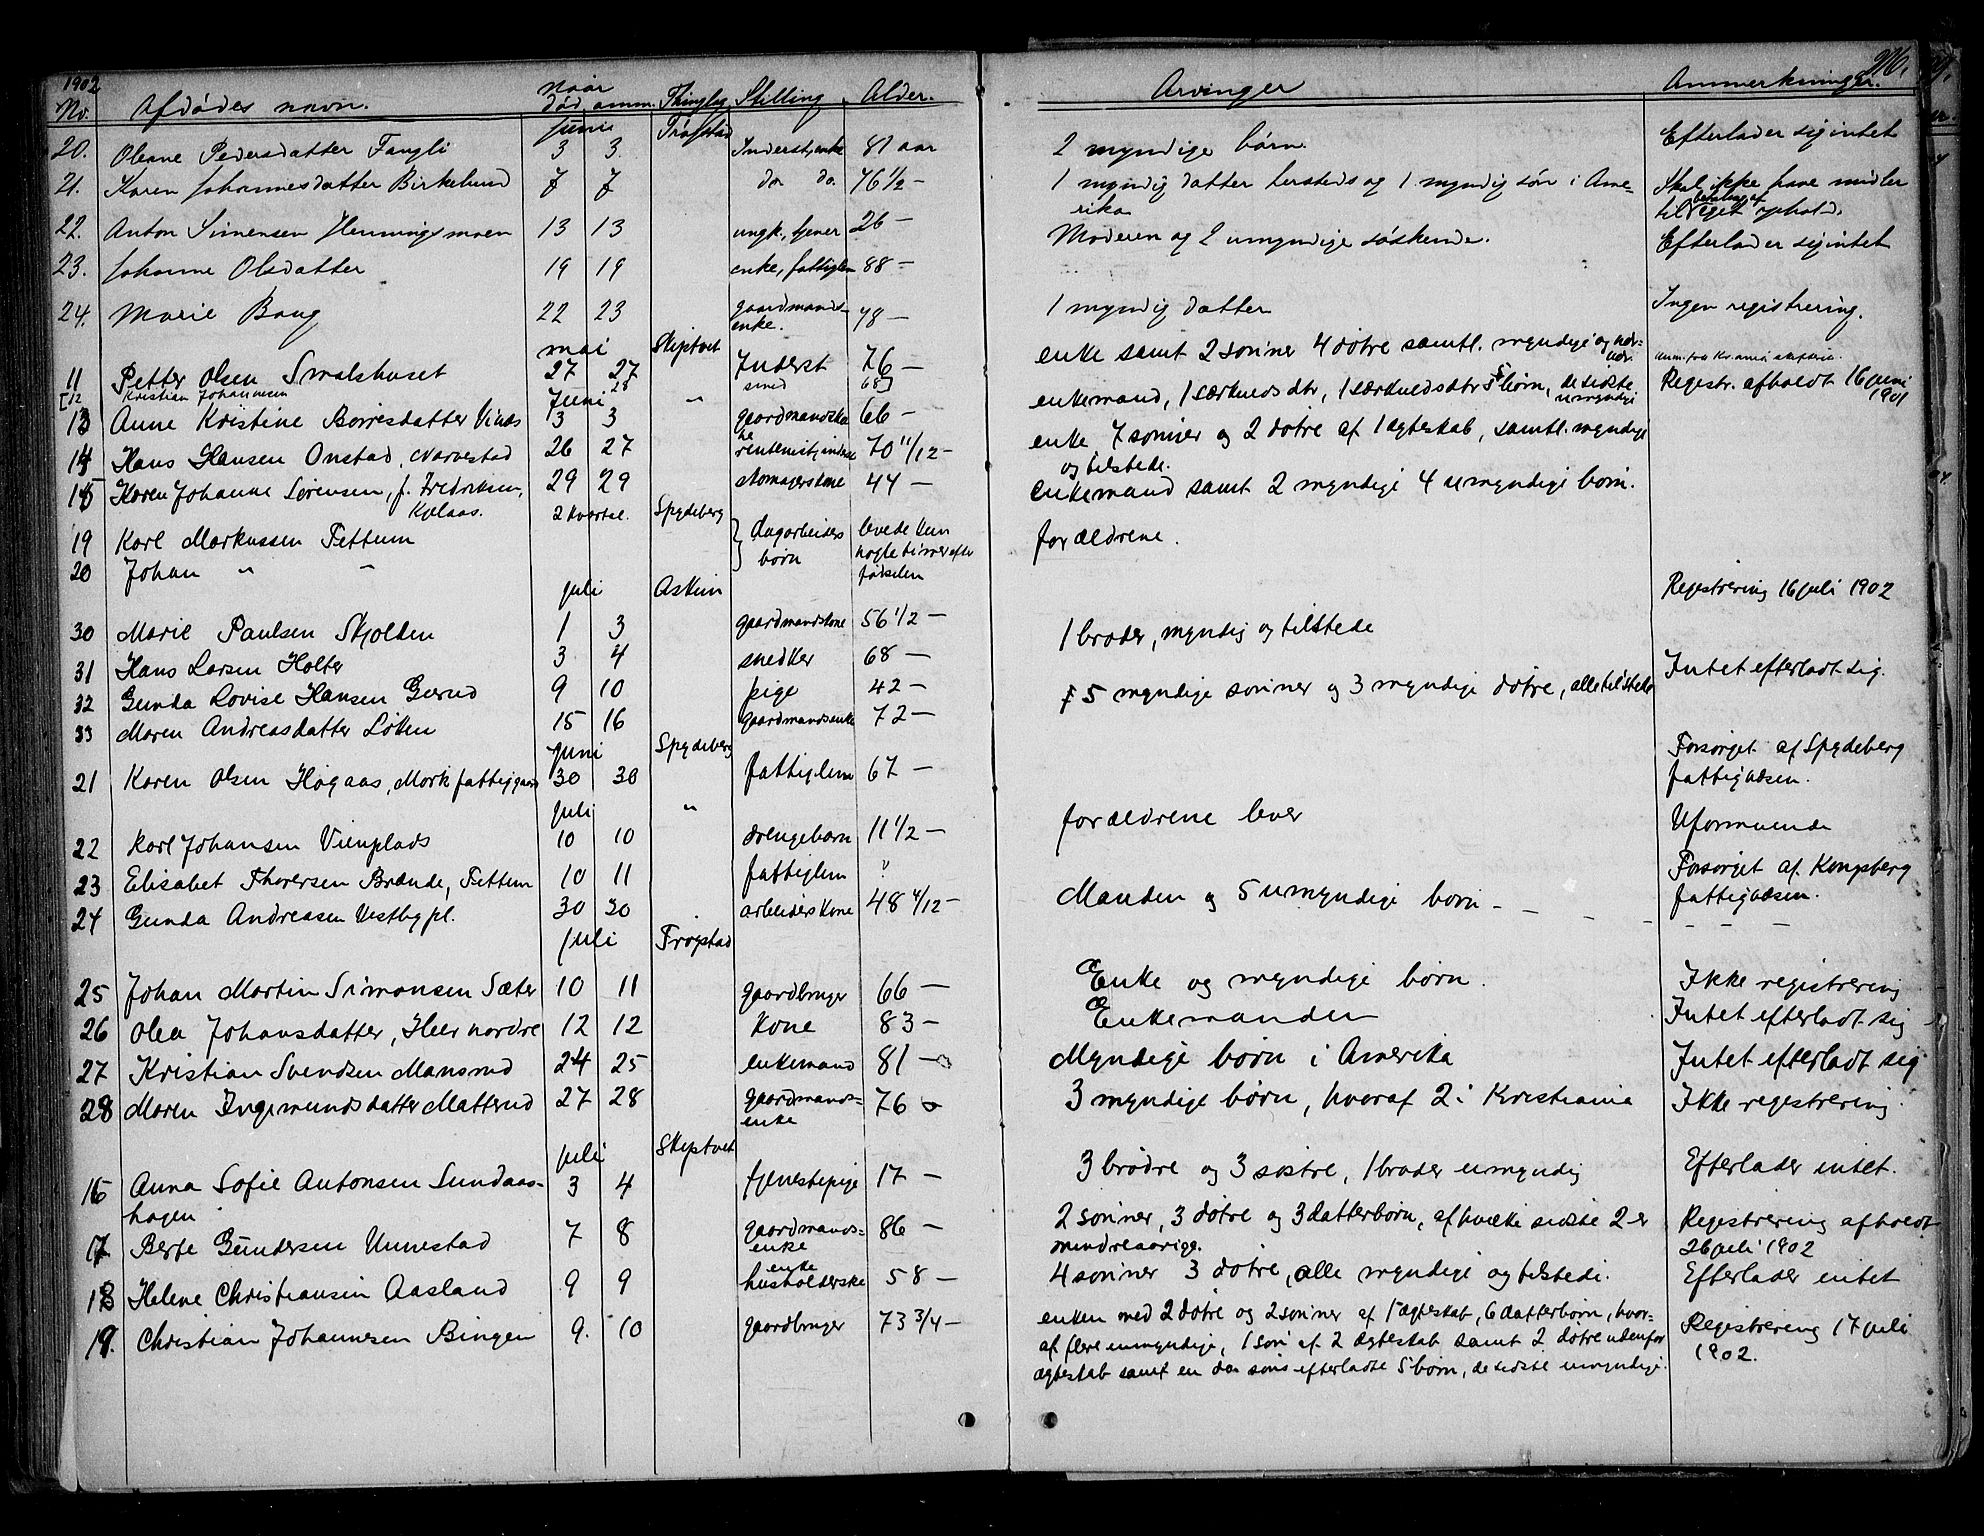 1902 Naar 216.
No. Afdødes navn. død anm. Thinglag Stilling Alder. Arvinger Anmerkninger.
Juni Trøgstad
20. Oleane Pedersdatter Fangli 3 3. Inderstenke 81 aar 2 myndige børn. Efterlader sig intet
21. Karen Johannesdatter Birkelund 7 7 do do. 76 1/2 – 1 myndig datter hersteds og 1 myndig søn i Ame-
rika Skal ikke have midler
til betaling af eget ophold.
22. Anton Simensen Henningsmoen 13 13 ungk., tjener 26 – Moderen og 2 umyndige søskende. Efterlader sig intet
23. Johanne Olsdatter 19 19 enke, fattiglem 88 –
24. Marie Baug 22 23 gaardmands-
enke. 78 – 1 myndig datter Ingen registrering.
mai Skiptvet
11 Petter Olsen Smalshuset 27 27 Inderst 76 – enke samt 2 sønner 4 døtre samtl. myndige og
[12 Kristian Johannesen 28 smed 68]
Juni "
13 Anne Kristine Borresdatter Vines 3 3 gaardmandsko
ne 66 – enkemand, 1 særkulds dtr, 1 særkuldsdtrs 5 børn, de sidste
umyndige Registr. afholdt 16 juni
1901
14 Hans Hansen Onstad, Narvestad 26 27 rentenist, inderst 70 11/12 – enke 7 sønner og 2 døtre af 1 ægteskab, samtl. myndige
og tilstede.
15 Karen Johanne Sørensen, f. Fredriksen,
Kolaas. 29 29 skomagerskone 44 – enkemand samt 2 myndige 4 umyndige børn.
2 kvartal. Spydeberg
19 Karl Markussen Fettum } dagarbeiders
børn levede kun
nogle timer efter
fødselen forældrene.
20 Johan " "
juli Askim Registrering 16 juli 1902
30 Marie Paulsen Skjolden 1 3 gaardmandskone 56 1/2 –
31 Hans Larsen Holter 3 4 snedker 68 – 1 broder, myndig og tilstede
32 Gunda Lovise Hansen Gerud 9 10 pige 42 – 5 myndige sønner og 3 myndige døtre, alle tilstede Intet efterladt sig.
33 Maren Andreasdatter Løken 15 16 gaardmandsenke 72 –
Juni Spydeberg
21 Karen Olsen Høgaas, Mørk fattiggaard 30 30 fattiglem 67 – Forsørget af Spydeberg
fattigvæsen.
juli "
22 Karl Johansen Vienplads 10 10 drengebarn 11 1/2 – forældrene lever Uformuende
23 Elisabet Thoresen Brænde, Fettum 10 11 fattiglem ? Forsørget af Kongsberg
fattigvæsen.
24 Gunda Andreasen Vestbypl. 30 30 arbeiderskone 48 4/12 – Manden og 5 umyndige børn – – – – – – –
juli Trøgstad
25 Johan Martin Simonsen Sæter 10 11 gaardbruger 66 – Enke og myndige børn. Ikke registrering
26 Olea Johansdatter, Heer nordre 12 12 Kone 83 – Enkemanden Intet efterladt sig
27 Kristian Svendsen Mansrud 24 25 enkemand 81 – Myndige børn i Amerika Intet efterladt sig
28 Maren Ingemundsdatter Matterud 27 28 gaardmands-
enke 76 – 3 myndige børn, hvoraf 2 i Kristiania Ikke registrering.
juli Skiptvet
16 Anna Sofie Antonsen Sundaas-
hagen 3 4 tjenestepige 17 – 3 brødre og 3 søstre, 1 broder umyndig Efterlader intet.
17 Berte Gundersen Unnestad 7 8 gaardmands-
enke 86 – 2 sønner, 3 døtre og 3 datterbørn, af hvilke sidste 2 er
mindreaarige. Registrering afholdt
26 juli 1902
18 Helene Christiansen Aasland 9 9 enke
husholderske 58 – 4 sønner 3 døtre, alle myndige og tilstede. Efterlader intet
19. Christian Johannesen Bingen 9. 10 gaardbruger 73 3/4 – enken med 2 døtre og 2 sønner af 1 ægteskab, 6 datterbørn, hvor-
af flere umyndige, 1 søn af 2 ægteskab samt 2 døtre udenfor
ægteskab samt en søns efterladte 5 børn, de sidste umyndige. Registrering 17 juli
1902.